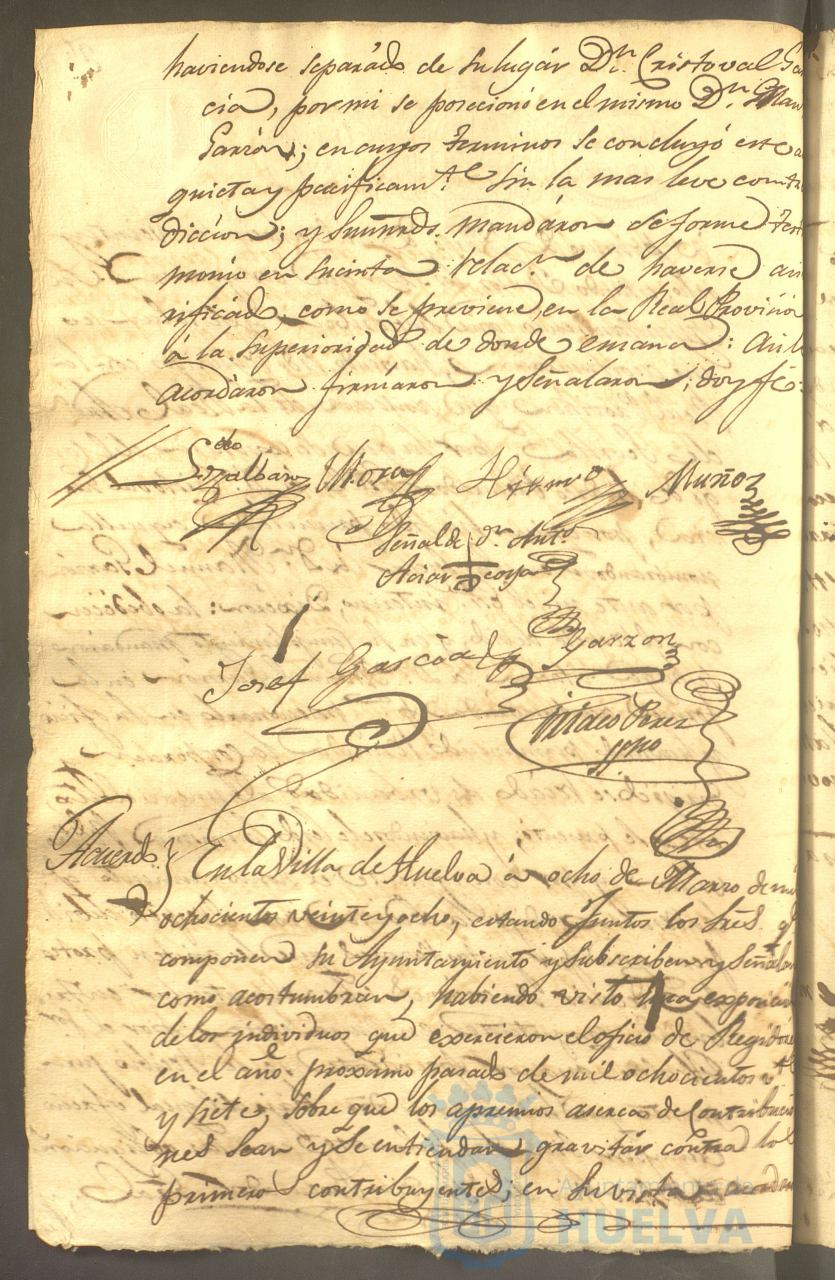 haviendose separádo de su lugár Dn. Cristoval Gar
cia, por mi se poseciónó en el mismo Dn. Man
Garzón; en cuyos terminos se concluyó este a
quieta y pacificamte. Sin la mas leve contra
diccion; y Sumrds. mandáron se forme tes
monio en sucinta relacn. de haverse asi
rificádo, como se previene, en la Real Provisio
á la Superioridad de donde emana: así lo
acordáron firmáron y Señalaron; doy fé.
Muñoz
Señal de dn. Anto.
Josef Garcia
Garzon
Mateo Perez
Acuerdo
En la Villa de Huelva á ocho de Marzo de mil
ochocientos veinte y ocho, estando Juntos los Sres. q
componen su Ayuntamiento y subscriben y Señalan
como acostumbran, habiendo visto una exposicion
de los individuos que exercieron el oficio de Regidores
en el año próximo pasado de mil ochocientos vte
y siete, sobre que los apremios aserca de Contribucio
nes sean y se entiendan gravitár contra los
primeros contribuyentes; en su vista acordaron
Ayuntamiento de
HUELVA